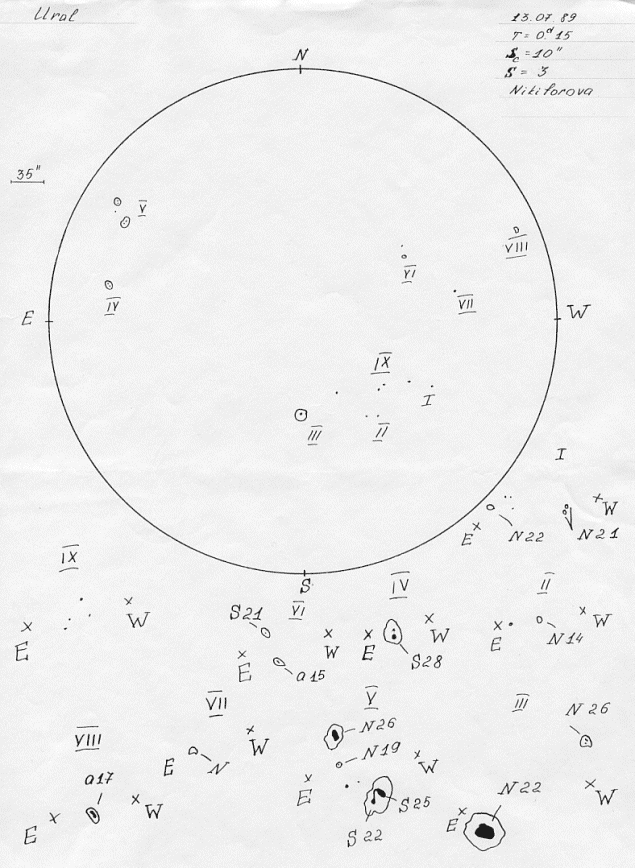 Ural
13.07.89
T = 0.ᵈ15
S꜀ = 10"
S = 3
Nikiforova
N
35"
V
VIII
VI
IV
VII
E
W
IX
I
III
II
I
W
E
N22
N21
S
IX
W
E
VI
S21
W
E
a15
IV
W
E
S28
II
W
E
N14
VII
W
E
N
V
N26
N19
W
E
S25
S22
III
N26
N22
W
E
VIII
a17
W
E